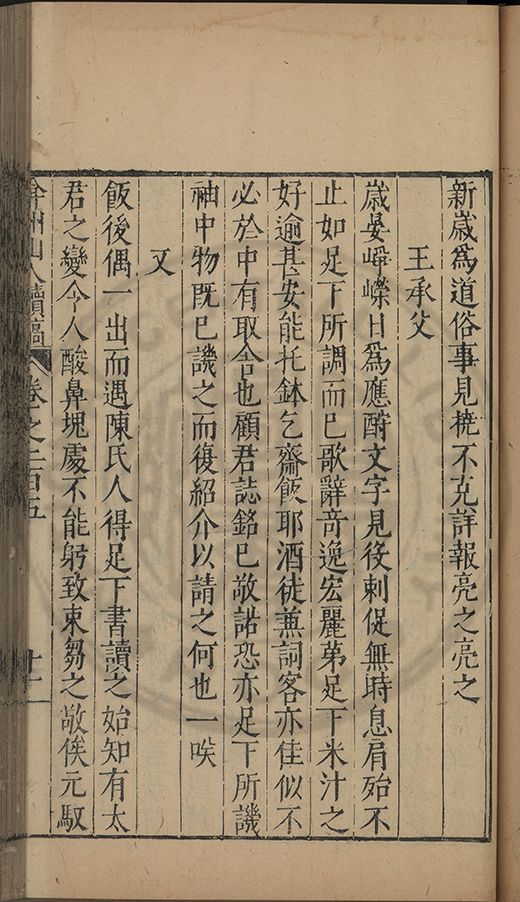 新歲為道俗事見撓不克詳報亮之亮之
王承父
歲晏崢嶸日為應酧文字見役刺促無時息肩殆不
止如足下所調而已歌辭竒逸宏麗苐足下米汁之
好逾甚安能托鉢乞齋飯耶酒徒兼詞客亦佳似不
必於中有取舎也顧君誌銘已敬諾恐亦足下所譏
袖中物既已譏之而復紹介以請之何也一咲
又
飯後偶一出而遇陳氏人得足下書讀之始知有太
君之變令人酸鼻塊處不能躬致束芻之敬俟元馭
弇州山人續稿 卷之二百五 十二